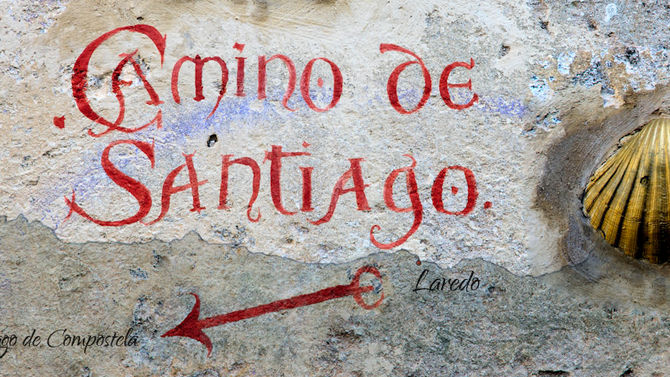 Camino de
Santiago.
Laredo
go de Compostela